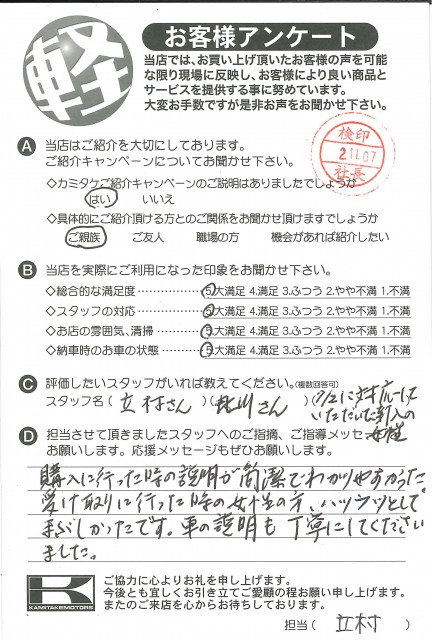 軽
お客様アンケート
当店では、お買い上げ頂いたお客様の声を可能
な限り現場に反映し、お客様により良い商品と
サービスを提供する事に努めています。
大変お手数ですが是非お声をお聞かせ下さい。
A 当店はご紹介を大切にしております。
ご紹介キャンペーンについてお聞かせ下さい。
検印
2.11.07
社長
◇カミタケご紹介キャンペーンのご説明はありましたでしょうか
はい いいえ
◇具体的にご紹介頂ける方とのご関係をお聞かせ頂けますでしょうか
ご親族 ご友人 職場の方 機会があれば紹介したい
B 当店を実際にご利用になった印象をお聞かせ下さい。
◇総合的な満足度 5.大満足 4.満足 3.ふつう 2.やや不満 1.不満
◇スタッフの対応 5.大満足 4.満足 3.ふつう 2.やや不満 1.不満
◇お店の雰囲気、清掃 5.大満足 4.満足 3.ふつう 2.やや不満 1.不満
◇納車時のお車の状態 5.大満足 4.満足 3.ふつう 2.やや不満 1.不満
C 評価したいスタッフがいれば教えてください。(複数回答可)
スタッフ名 ( 立村さん ) ( 北川さん ) (
に対応して
いただいた
女性
D 担当させて頂きましたスタッフへのご指摘、ご指導メッセージ
お願いします。応援メッセージもぜひお願いします。
購入に行った時の説明が簡潔でわかりやすかった
受け取りに行った時の女性の方、ハツラツとして
すばらしかったです。車の説明も丁寧にしてください
ました。
K
KAMITAKEMOTORS
ご協力に心よりお礼を申し上げます。
今後とも宜しくお引き立てご愛顧の程お願い申し上げます。
またのご来店を心からお待ちしております。
担当 ( 立村 )